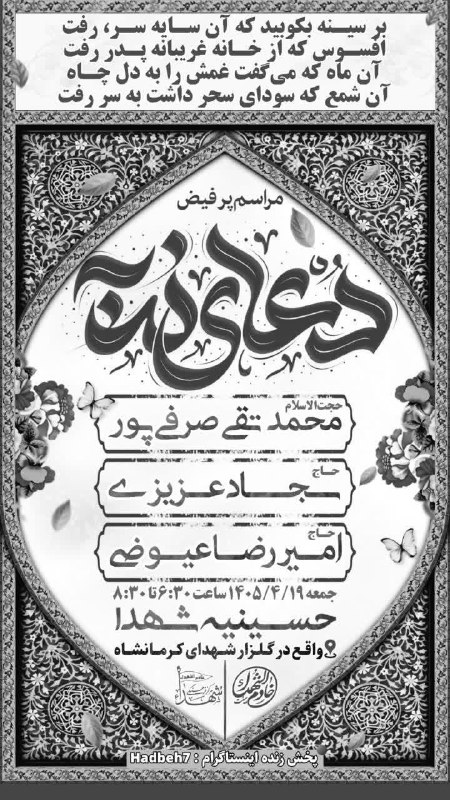 بر سینه بکوبید که آن سایه سر، رفت
افسوس که از خانه غریبانه پدر رفت
آن ماه که می‌گفت غمش را به دل چاه
آن شمع که سودای سحر داشت به سر رفت
مراسم پر فیض
دعای ندبه
حجت‌الاسلام
محمد تقی صرفی‌پور
حاج
سجاد عزیزی
حاج
امیررضا عیوضی
جمعه ۱۴۰۵/۴/۱۹ ساعت ۶:۳۰ تا ۸:۳۰
حسینیه شهدا
واقع در گلزار شهدای کرمانشاه
پخش زنده اینستاگرام : Hadbeh7